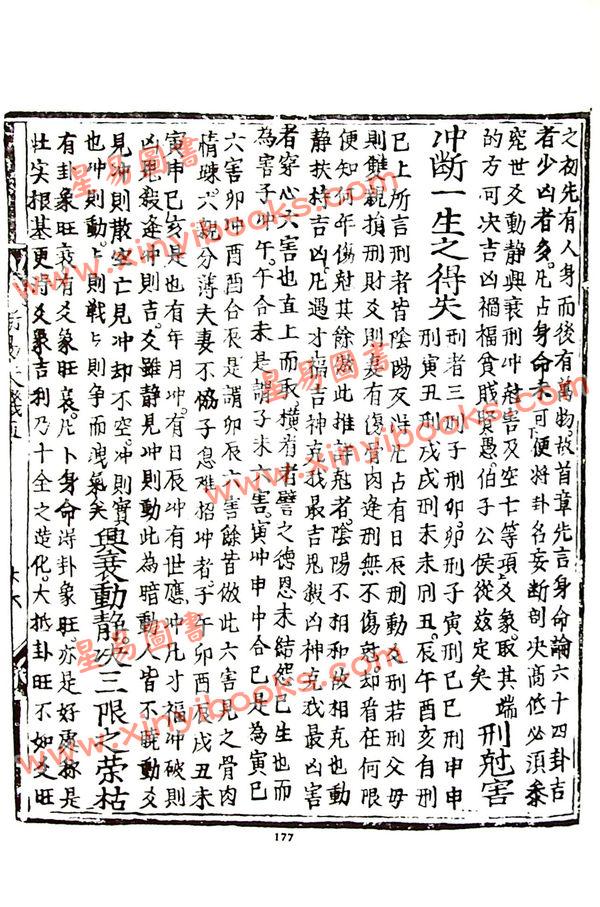 之初先有人身而後有萬物故首章先言身命論六十四卦吉
者少凶者多凡占身命未可便將卦名妄斷剖決高低必須參
究世爻動靜興衰刑冲尅害及空亡等項爻象取其端
的方可決吉凶禍福貧賤賢愚伯子公侯從茲定矣 刑尅害
冲断一生之得失 刑者三刑子刑卯卯刑子寅刑巳巳刑申申
刑寅丑刑戌戌刑未未刑丑辰午酉亥自刑
巳上所言刑者皆陰陽反 凡占有日辰刑動爻刑若刑父母
則雙親損刑財爻則妻有傷骨肉逢刑無不傷尅却看在何限
便知何年傷尅其餘做此推詳尅者陰陽不相和故相克也動
靜扶持吉凶凡遇才福吉神克我最吉鬼殺凶神克我最凶害
者穿心六害也直上而 橫看者譬之德恩未結怨已生也而
為害子冲午午合未是謂子未六害寅冲申申合巳是為寅巳
六害卯冲酉酉合辰是謂卯辰六害餘皆倣此六害見之骨肉
情疎六親分薄夫妻不恊子息难招冲者子午卯酉辰戌丑未
寅申巳亥是也有年月冲有日辰冲有世應冲凡才福冲破則
凶鬼殺逢冲則吉爻雖靜見冲則動此為暗動人皆不 動爻
見冲則散空亡見冲却不空冲則實 興衰動靜决三限之荣枯
也冲則動動則戰戰則争而洩氣矣
有卦象旺衰有爻象旺衰凡卜身命得卦象旺亦是好處称是
壮实根基更得爻象吉利乃十全之造化大抵卦旺不如爻旺
177
星易圖書
www.xinyibooks.com
星易圖書
www.xinyibooks.com
星易圖書
www.xinyibooks.com